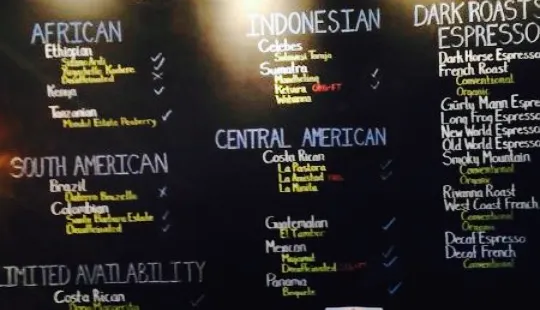 AFRICAN
Ethiopian
Sidamo Ardi
Yirgacheffe Konkere
Decaffeinated
Kenya
Tanzanian
Mondul Estate Peaberry
SOUTH AMERICAN
Brazil
Colombian
Santa Barbara Estate
Decaffeinated
LIMITED AVAILABILITY
Costa Rican
INDONESIAN
Celebes
Sulawesi Toraja
Sumatra
Mandheling
Ketiara ORG-FT
Wahana
CENTRAL AMERICAN
Costa Rican
La Pastora
La Amistad
La Minita
Guatemalan
El Tambor
Mexican
Decaffeinated
Panama
Boquete
DARK ROASTS
ESPRESSO
Dark Horse Espresso
French Roast
Conventional
Organic
Gurly Mann Espre
Long Frog Espresso
New World Espresso
Old World Espresso
Smoky Mountain
Conventional
Organic
Rivanna Roast
West Coast French
Conventional
Organic
Decaf Espresso
Decaf French
Conventional